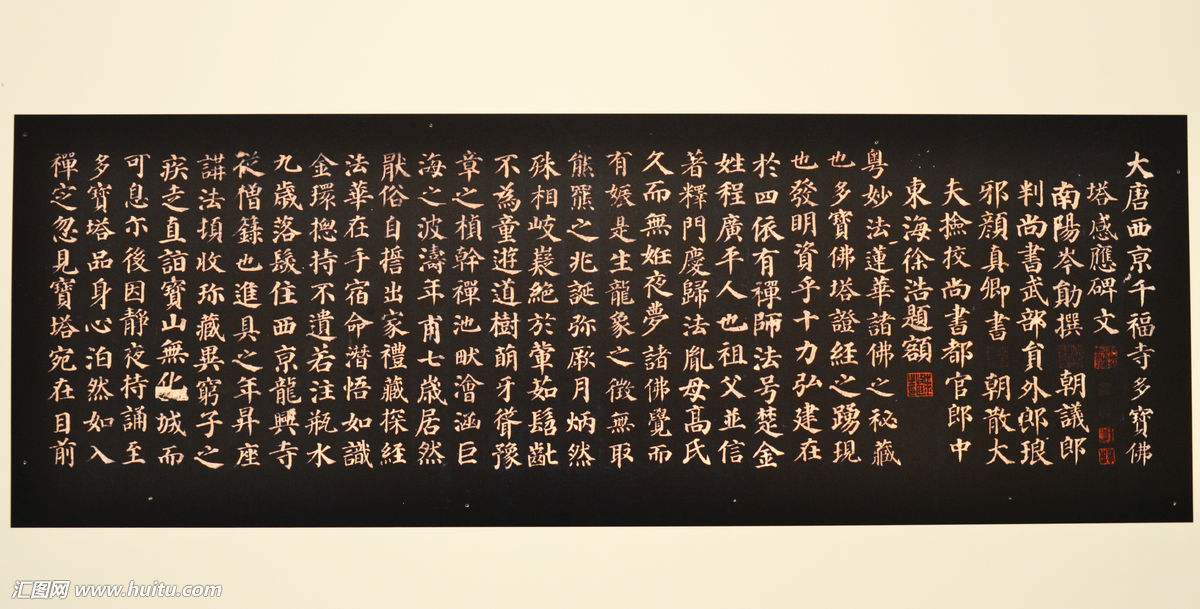 大唐西京千福寺多寶佛
塔感應碑文
南陽岑勛撰 朝議郎
判尚書武部員外郎琅
邪顏真卿書 朝散大
夫撿挍尚書都官郎中
東海徐浩題額
粵妙法蓮華諸佛之秘藏
也多寶佛塔證經之踴現
也發明資乎十力弘建在
於四依有禪師法号楚金
姓程廣平人也祖父並信
著釋門慶歸法胤母高氏
久而無姙夜夢諸佛覺而
有娠是生龍象之徵無取
熊羆之兆誕弥厥月炳然
殊相岐嶷絕於葷茹髫齓
不為童遊道樹萌牙聳豫
章之楨幹禪池畎澮涵巨
海之波濤年甫七歲居然
厭俗自誓出家禮藏探經
法華在手宿命潛悟如識
金環揔持不遺若注瓶水
九歲落髮住西京龍興寺
從僧籙也進具之年昇座
講法頃收珎藏異窮子之
疾走直詣寶山無化城而
可息尔後因靜夜持誦至
多寶塔品身心泊然如入
禪定忽見寶塔宛在目前
汇图网 www.huitu.com